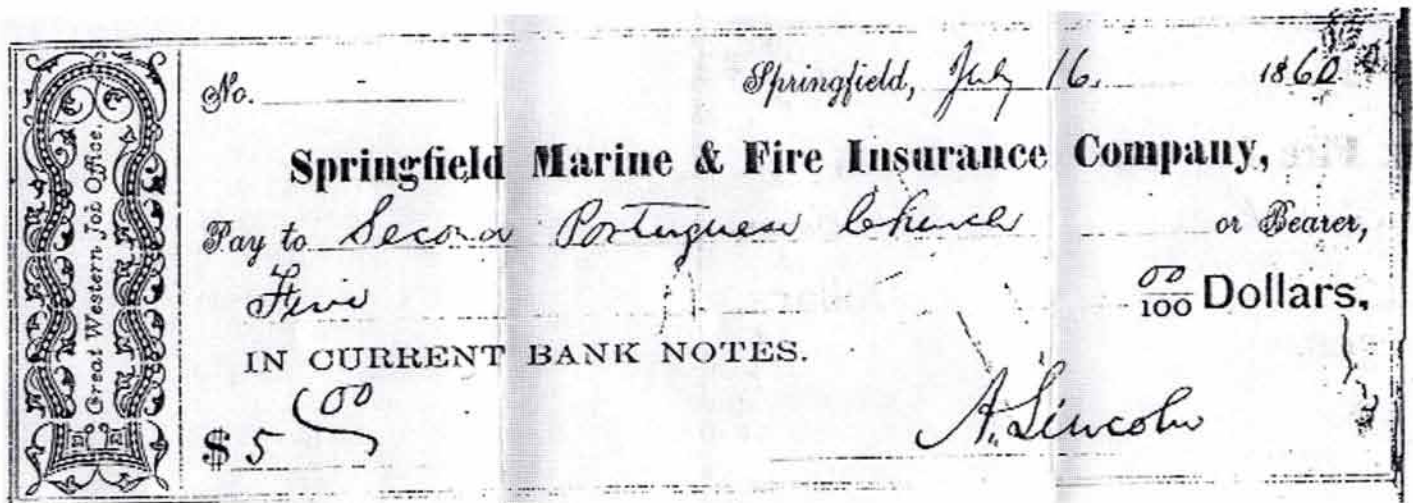 Great Western Job Office.
No. - Springfield, July 16. 1860
Springfield Marine & Fire Insurance Company,
Pay to Second Portuguese Church or Bearer,
Five 00/100 Dollars,
IN CURRENT BANK NOTES.
$ 5 00 A. Lincoln